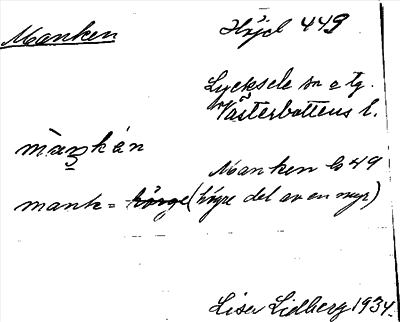 Manken Höjd 449
Lycksele sn o tg.
Västerbottens l.
màŋkán
Manken b 49
mank = hörge (högre del av en myr)
Lisa Lidberg 1934.